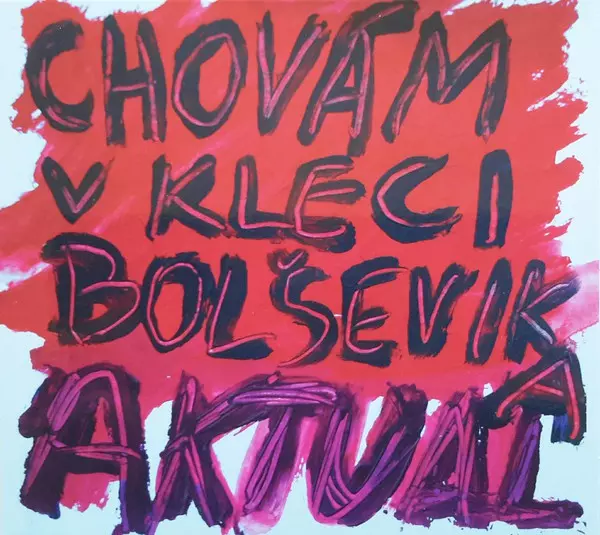 CHOVÁM
V KLECI
BOLŠEVIKA
AKTUAL